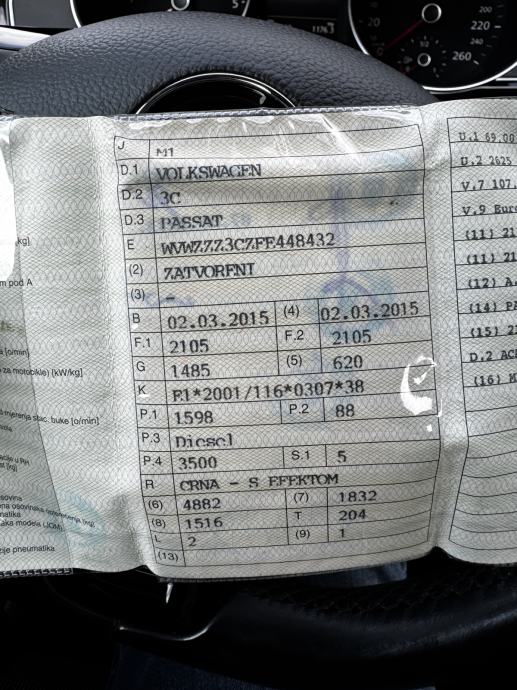 5
11763
20
1/2
200
220
240
260
J M1
D.1 VOLKSWAGEN
D.2 3C
D.3 PASSAT
E WVWZZZ3CZFE448432
(2) ZATVORENI
(3) –
B 02.03.2015 (4) 02.03.2015
F.1 2105 F.2 2105
G 1485 (5) 620
K E1*2001/116*0307*38
P.1 1598 P.2 88
P.3 Diesel
P.4 3500 S.1 5
R CRNA - S EFEKTOM
(6) 4882 (7) 1832
(8) 1516 T 204
L 2 (9) 1
(13)
kg]
m pod A
[o/min]
za motobikle) [kW/kg]
mjerenja stac. buke [o/min]
u RH
[kg]
osovina
na osovinska
matika
aka modela (JOM)
zije pneumatika
U.1 69.00
U.2 2625
V.7 107.
V.9 Euro
(11) 21
(11) 21
(12) A.
(14) PA
(15) 2
D.2 AC
(16) K